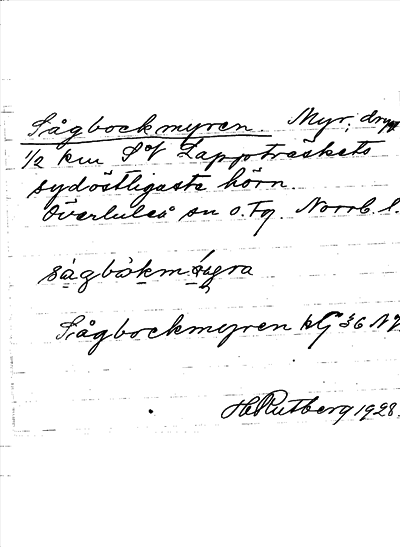 Sågbockmyren. Myr; drygt
1/2 km SV Lappträskets
sydöstligaste hörn.
Överluleå sn o. Tg. Norrb. l.
Sågbockmyren kG 36 NV
H. Rutberg 1928.